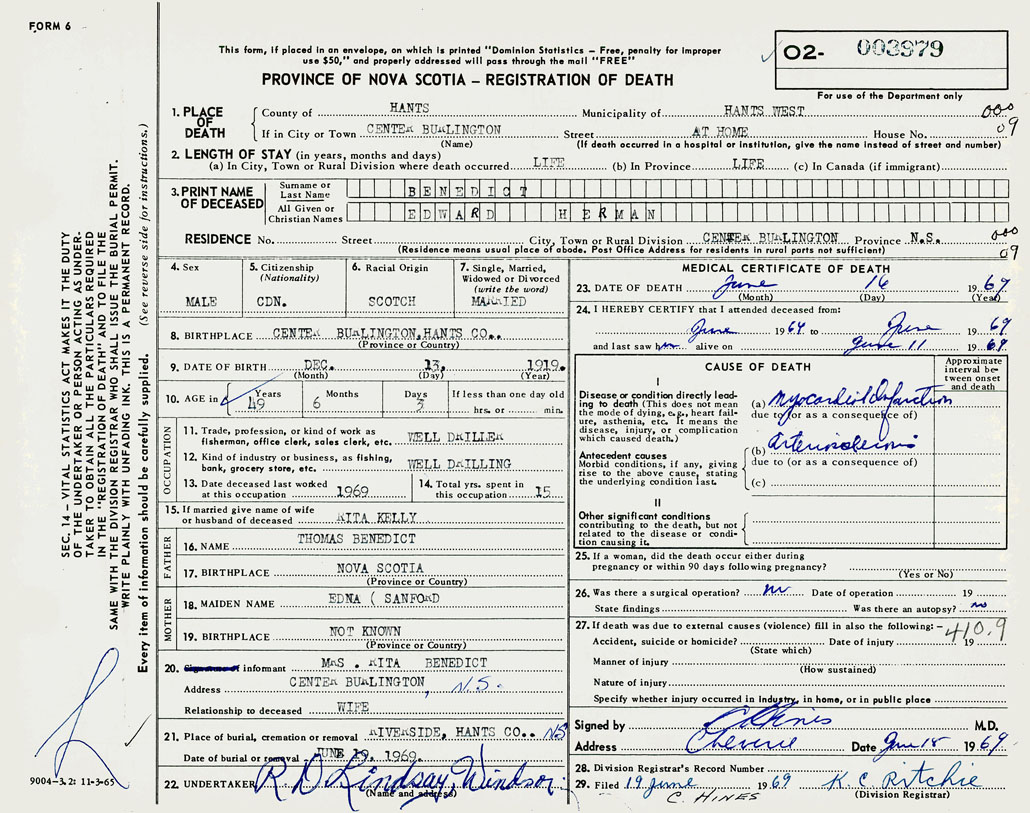 FORM 6
This form, if placed in an envelope, on which is printed "Dominion Statistics – Free, penalty for improper
use $50," and properly addressed will pass through the mail "FREE"
PROVINCE OF NOVA SCOTIA – REGISTRATION OF DEATH
02- 003979
For use of the Department only
1. PLACE OF DEATH
County of HANTS Municipality of HANTS WEST 000
If in City or Town CENTER BURLINGTON Street AT HOME House No. 09
(Name) (If death occurred in a hospital or institution, give the name instead of street and number)
2. LENGTH OF STAY (in years, months and days)
(a) In City, Town or Rural Division where death occurred LIFE (b) In Province LIFE (c) In Canada (if immigrant)
3. PRINT NAME OF DECEASED
Surname or Last Name BENEDICT
All Given or Christian Names EDWARD HERMAN
RESIDENCE No. Street City, Town or Rural Division CENTER BURLINGTON Province N.S. 000
(Residence means usual place of abode. Post Office Address for residents in rural parts not sufficient) 09
4. Sex
MALE
5. Citizenship
(Nationality)
CDN.
6. Racial Origin
SCOTCH
7. Single, Married,
Widowed or Divorced
(write the word)
MARRIED
8. BIRTHPLACE CENTER BURLINGTON, HANTS CO..
(Province or Country)
9. DATE OF BIRTH DEC. 13, 1919.
(Month) (Day) (Year)
10. AGE in Years Months Days If less than one day old
49 6 3 hrs. or min.
OCCUPATION
11. Trade, profession, or kind of work as
fisherman, office clerk, sales clerk, etc. WELL DRILLER
12. Kind of industry or business, as fishing,
bank, grocery store, etc. WELL DRILLING
13. Date deceased last worked
at this occupation 1969
14. Total yrs. spent in
this occupation 15
15. If married give name of wife
or husband of deceased RITA KELLY
FATHER
16. NAME THOMAS BENEDICT
17. BIRTHPLACE NOVA SCOTIA
(Province or Country)
MOTHER
18. MAIDEN NAME EDNA ( SANFORD
19. BIRTHPLACE NOT KNOWN
(Province or Country)
20. Signature of informant MRS. RITA BENEDICT
Address CENTER BURLINGTON, N.S.
Relationship to deceased WIFE
21. Place of burial, cremation or removal RIVERSIDE, HANTS CO.. NS
Date of burial or removal JUNE 19, 1969.
22. UNDERTAKER R D Lindsay, Windsor
(Name and address)
MEDICAL CERTIFICATE OF DEATH
23. DATE OF DEATH June 16 1969
(Month) (Day) (Year)
24. I HEREBY CERTIFY that I attended deceased from:
June 1964 to June 1969
and last saw him alive on June 11 1969
CAUSE OF DEATH
Approximate
interval be-
tween onset
and death
I
Disease or condition directly lead-
ing to death (This does not mean
the mode of dying, e.g., heart fail-
ure, asthenia, etc. It means the
disease, injury, or complication
which caused death.)
(a) Myocardial Infarction
due to (or as a consequence of)
Antecedent causes
Morbid conditions, if any, giving
rise to the above cause, stating
the underlying condition last.
(b) Arteriosclerosis
due to (or as a consequence of)
(c)
II
Other significant conditions
contributing to the death, but not
related to the disease or condi-
tion causing it.
25. If a woman, did the death occur either during
pregnancy or within 90 days following pregnancy?
(Yes or No)
26. Was there a surgical operation? no Date of operation 19
State findings Was there an autopsy? no
27. If death was due to external causes (violence) fill in also the following: – 410.9
Accident, suicide or homicide? Date of injury 19
(State which)
Manner of injury
(How sustained)
Nature of injury
Specify whether injury occurred in industry, in home, or in public place
Signed by C Hines M.D.
Address Cheverie Date June 18 1969
28. Division Registrar's Record Number
29. Filed 19 June 1969 K. C. Ritchie
C. HINES (Division Registrar)
SEC. 14 – VITAL STATISTICS ACT MAKES IT THE DUTY
OF THE UNDERTAKER OR PERSON ACTING AS UNDER-
TAKER TO OBTAIN ALL THE PARTICULARS REQUIRED
IN THE "REGISTRATION OF DEATH" AND TO FILE THE
SAME WITH THE DIVISION REGISTRAR WHO SHALL ISSUE THE BURIAL PERMIT.
WRITE PLAINLY WITH UNFADING INK. THIS IS A PERMANENT RECORD.
Every item of information should be carefully supplied. (See reverse side for instructions.)
9004-3.2: 11-3-65